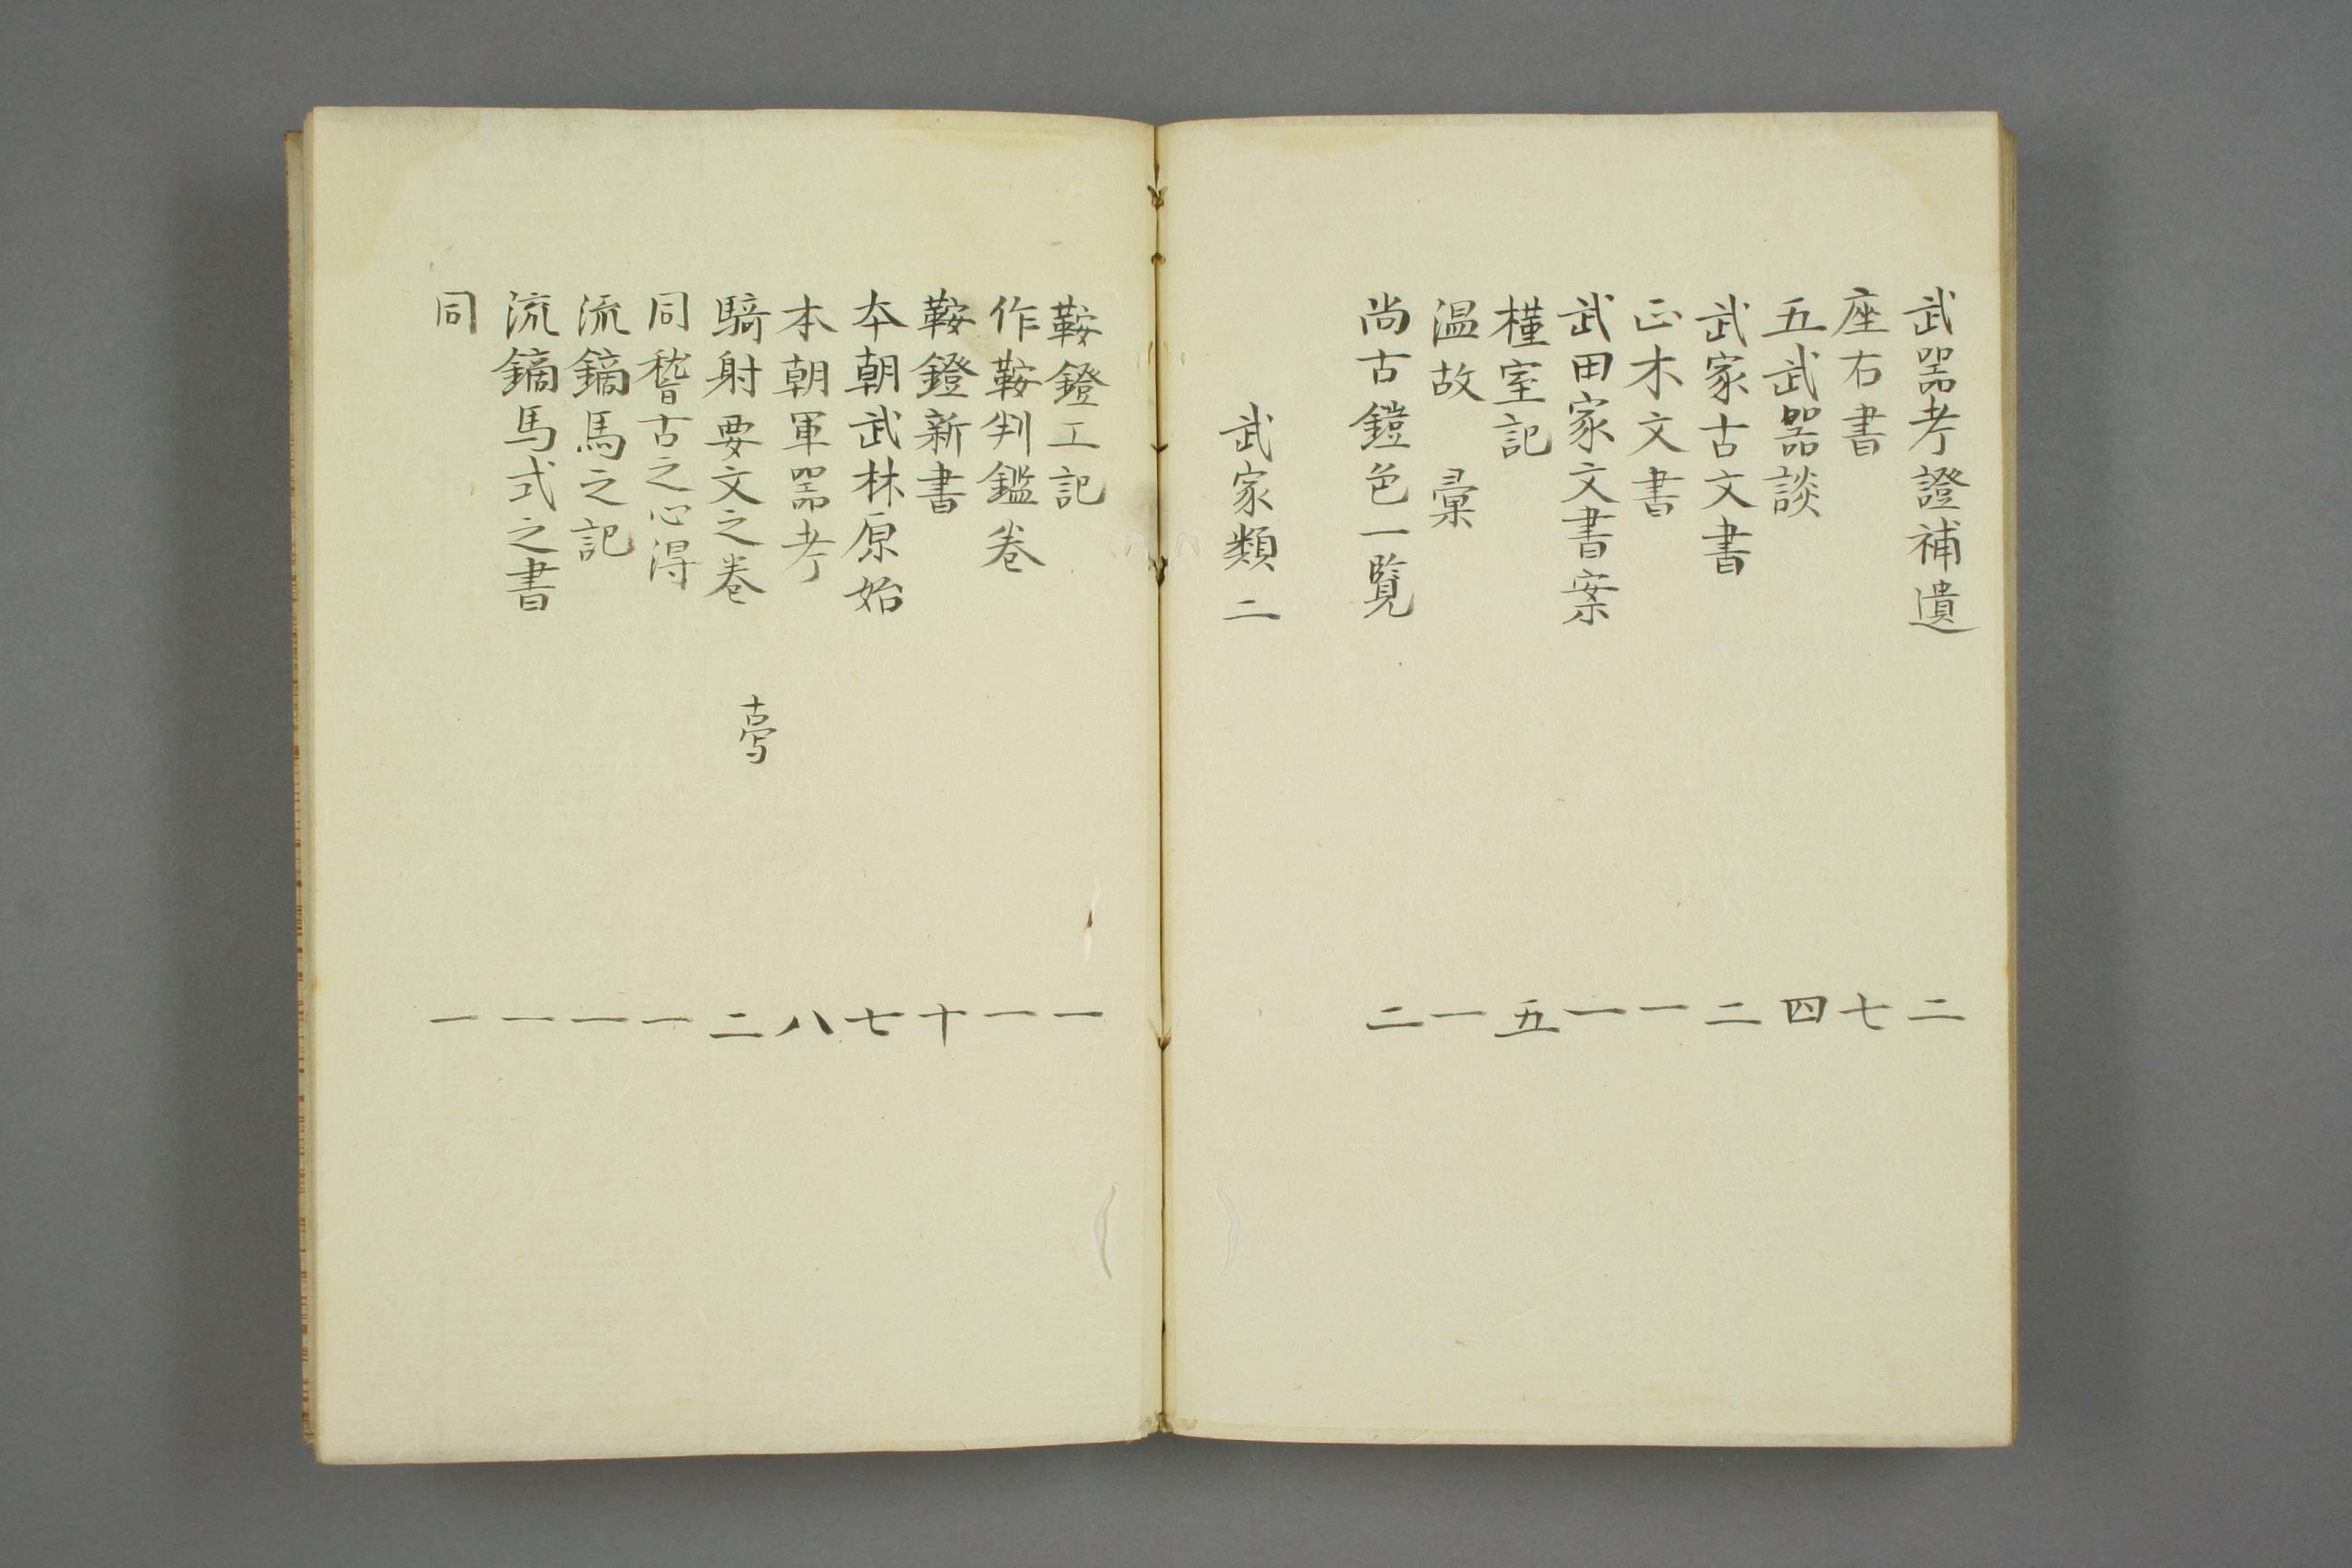 武器考證補遺 二
座右書 七
五武器談 四
武家古文書 二
正木文書 一
武田家文書案 一
槿室記 五
温故 彙 一
尚古鎧色一覧 二
武家類 二
鞍鐙工記 一
作鞍判鑑巻 一
鞍鐙新書 十
本朝武林原始 七
本朝軍器考 八
騎射要文之巻 古写 二
同稽古之心得 一
流鏑馬之記 一
流鏑馬式之書 一
同 一